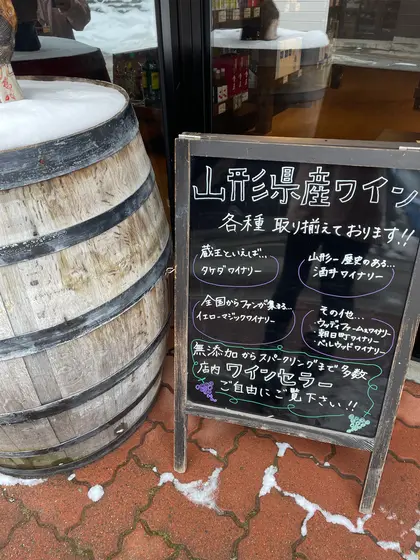 山形県産ワイン
各種 取り揃えております!!
蔵王といえば…
タケダワイナリー
山形一歴史のある…
酒井ワイナリー
全国からファンが集まる…
イエローマジックワイナリー
その他…
・ウッディファーム&ワイナリー
朝日町ワイナリー
・ベルウッドワイナリー
無添加からスパークリングまで多数
店内 ワインセラー
ご自由にご覧下さい!!